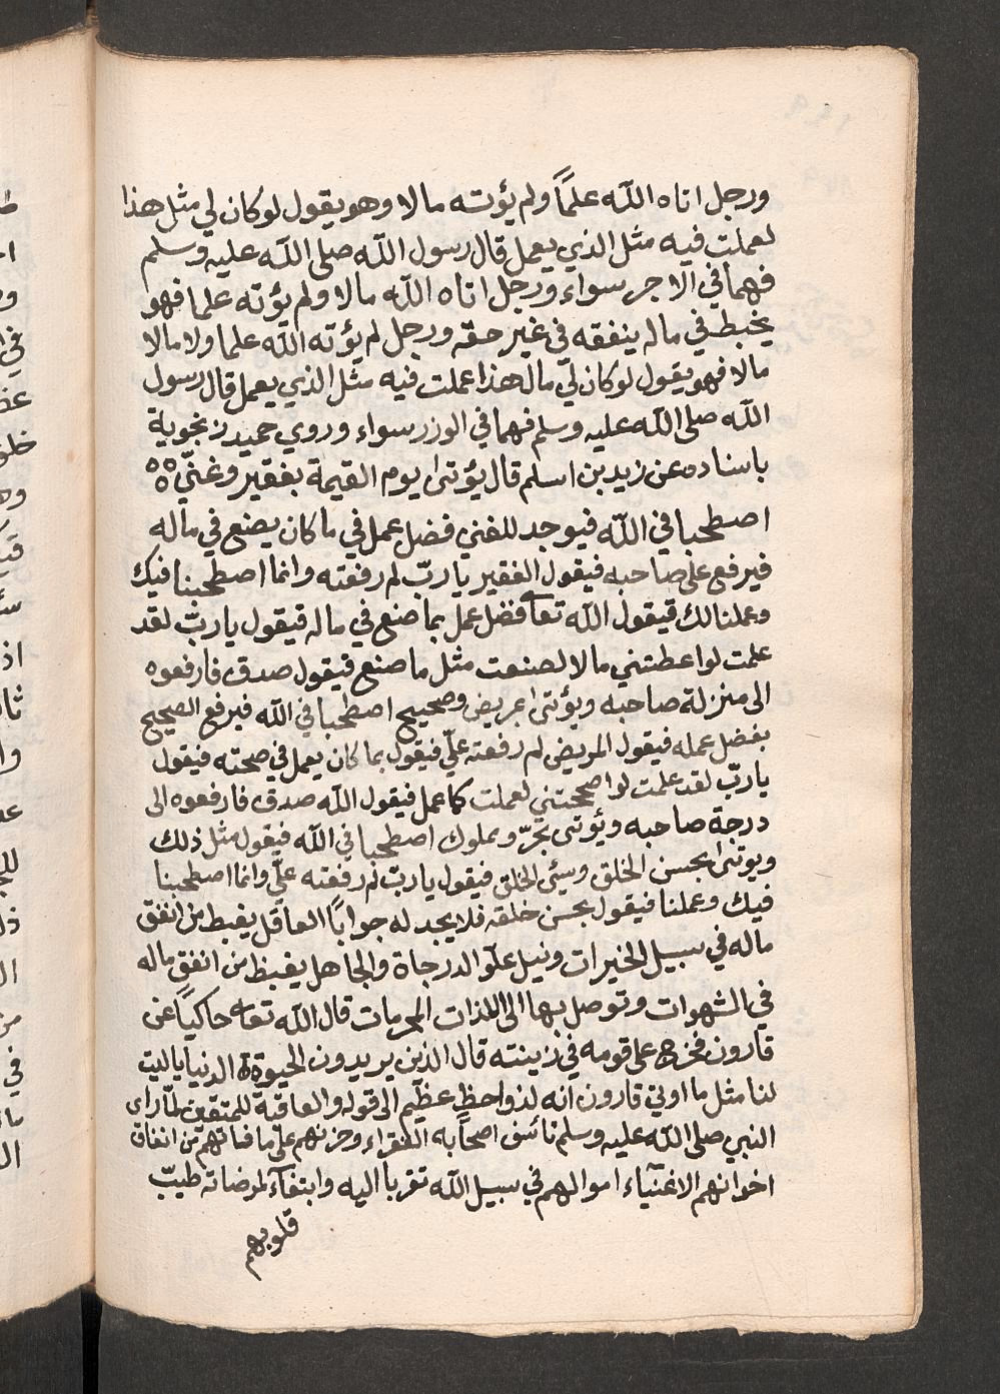 ورجل اتاه الله علمًا ولم يؤته مالا وهو يقول لو كان لي مثل هذا
لعملت فيه مثل الذي يعمل قال رسول الله صلى الله عليه وسلم
فهما في الاجر سواء ورجل اتاه الله مالا ولم يؤته علما فهو
يخبط في ماله ينفقه في غير حقه ورجل لم يؤته الله علما ولا مالا
مالا فهو يقول لو كان لي مال هذا عملت فيه مثل الذي يعمل قال رسول
الله صلى الله عليه وسلم فهما في الوزر سواء وروي حميد زنجوية
باسناده عن زيد بن اسلم قال يؤتى يوم القيمة بفقير وغنيّ
اصطحبا في الله فيوجد للغني فضل عمل في ما كان يصنع في ماله
فيرفع على صاحبه فيقول الفقير يا ربّ لم رفعته وانما اصطحبنا فيك
وعملنا لك فيقول الله تعا فضل عمل بما صنع في ماله فيقول يا ربّ لقد
علمت لو اعطتني مالا لصنعت مثل ما صنع فيقول صدق فارفعوه
الى منزلة صاحبه ويؤتى بمريض وصحيح اصطحبا في الله فيرفع الصحيح
بفضل عمله فيقول المريض لم رفعته عليّ فيقول بما كان يعمل في صحته فيقول
يا ربّ لقد علمت لو اصححتني لعملت كما عمل فيقول الله صدق فارفعوه الى
درجة صاحبه ويؤتى بحرّ ومملوك اصطحبا في الله فيقول مثل ذلك
ويوتى بحسن الخلق وسيئ الخلق فيقول يا ربّ لم رفعته عليّ وانما اصطحبنا
فيك وعملنا فيقول بحسن خلقه فلا يجد له جوابًا العاقل يغبط من انفق
ماله في سبيل الخيرات ونيل علوّ الدرجاة والجاهل يغبط من انفق ماله
في الشهوات وتوصل بها الى اللذات المحرمات قال الله تعا حاكيًا عن
قارون فخرج على قومه في زينته قال الذين يريدون الحيوة الدنيا يا ليت
لنا مثل ما اوتي قارون انه لذو حظ عظيم الى قوله والعاقبة للمتقين لمّا راى
النبي صلى الله عليه وسلم تاسّف اصحابه الفقراء وحزنهم على ما فاتهم من انفاق
اخوانهم الاغنياء اموالهم في سبيل الله تقربا اليه وابتغاء لمرضاته طيبّ
قلوبهم